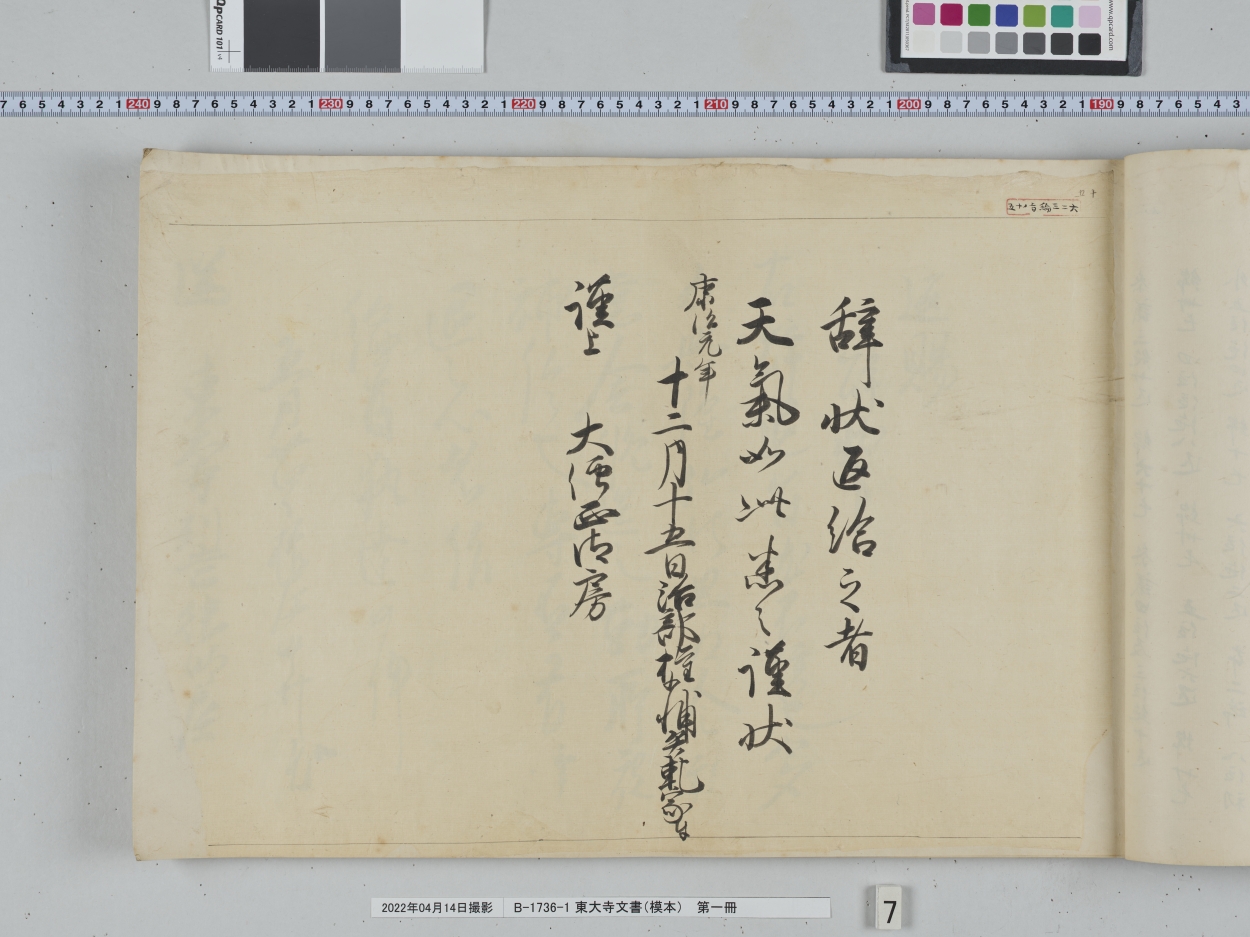 辞状返給之者
天氣如此悉之謹状
康治元年
十二月十五日治部権補
謹上 大僧正御房
大二三編台八十五
2022年04月14日撮影 B-1736-1 東大寺文書(模本) 第一冊
7
QpCARD 101 v4
www.qpcard.com
7 6 5 4 3 2 1 240 9 8 7 6 5 4 3 2 1 230 9 8 7 6 5 4 3 2 1 220 9 8 7 6 5 4 3 2 1 210 9 8 7 6 5 4 3 2 1 200 9 8 7 6 5 4 3 2 1 190 9 8 7 6 5 4 3